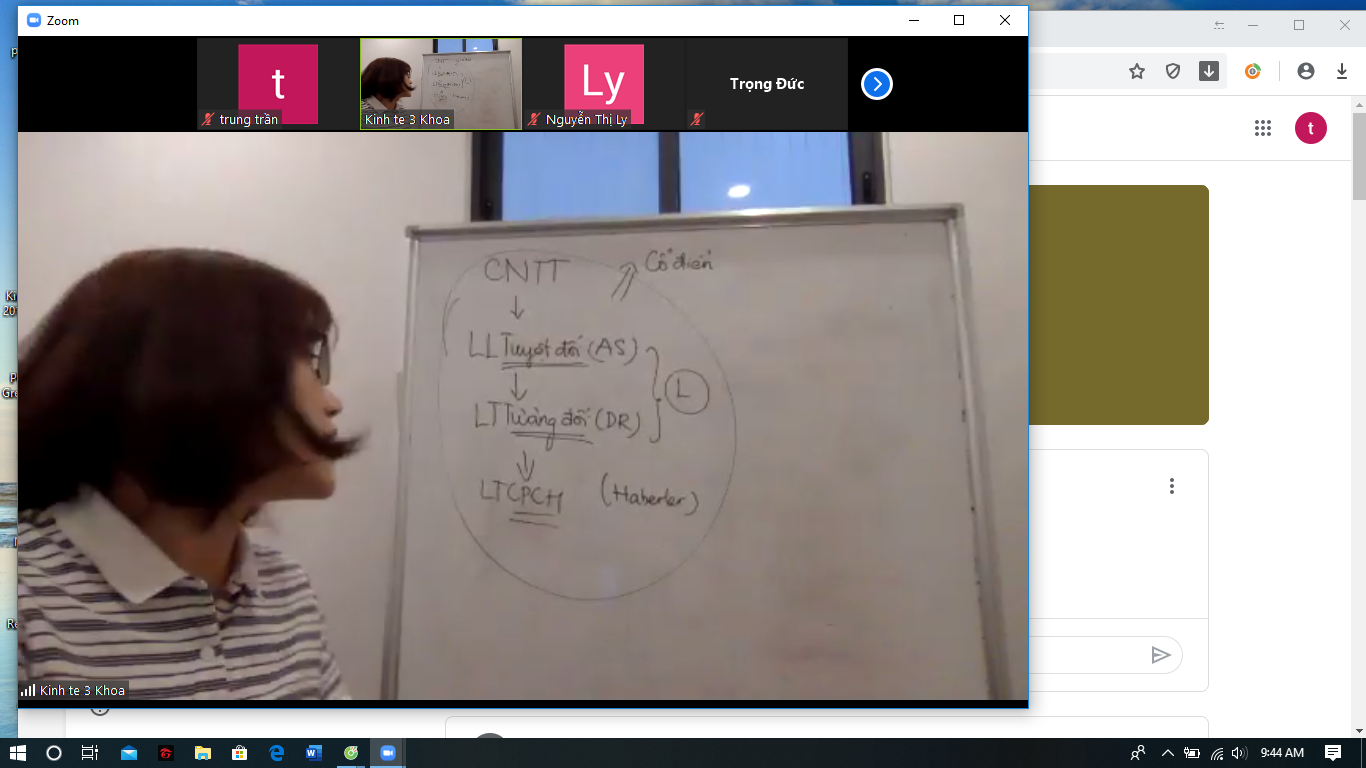 Zoom
t
trung trần
Kinh te 3 Khoa
Ly
Nguyễn Thị Ly
Trọng Đức
t
CNTT
Cổ điển
LL Tuyệt đối (AS)
L
LT Tương đối (DR)
LTCPCH (Haberler)
Kinh te 3 Khoa
9:44 AM